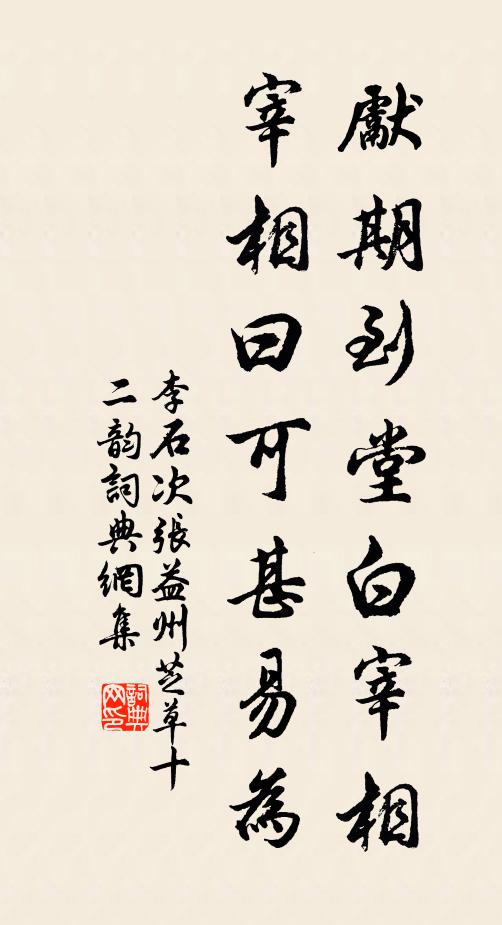 獻期到堂白宰相
宰相曰可甚易為
李石次張益州芝草十
二韵詞典網集
詞典
网印